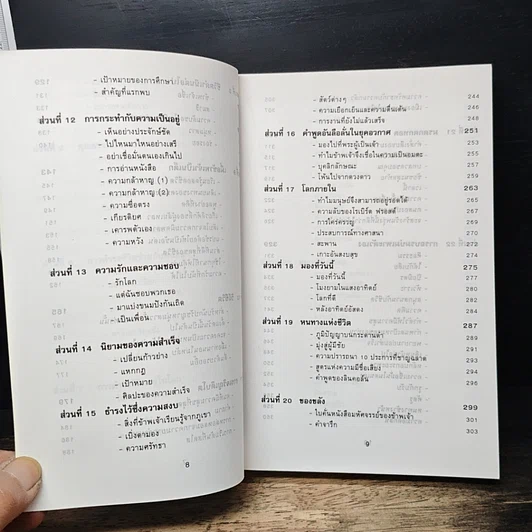 - เป้าหมายของการศึกษา
- สำคัญที่แรกพบ
ส่วนที่ 12 การกระทำกับความเป็นอยู่
- เห็นอย่างประจักษ์ชัด
- ไปไหนมาไหนอย่างเสรี
- อย่าเชื่อมั่นตนเองเกินไป
- การอ่านหนังสือ
- ความกล้าหาญ (1)
- ความกล้าหาญ (2)
- ความซื่อตรง
- เกียรติยศ
- เคารพตัวเอง
- ความหวัง
ส่วนที่ 13 ความรักและความชอบ
- รักโลก
- แต่ฉันชอบพวกเธอ
- มาแบ่งขนมปังกันเถิด
- เป็นเพื่อน
ส่วนที่ 14 นิยามของความสำเร็จ
- เปลี่ยนก้าวย่าง
- แหกกฎ
- เป้าหมาย
- ศิลปะของความสำเร็จ
ส่วนที่ 15 ธำรงไว้ซึ่งความสงบ
- สิ่งที่ข้าพเจ้าเรียนรู้จากภูเขา
- เบิ่งตามอง
- ความศรัทธา
8
- สัตว์ต่างๆ 244
- ความเยือกเย็นและความตื่นเต้น 246
- การงานที่ยังไม่แล้วเสร็จ 248
ส่วนที่ 16 คำพูดอันลือลั่นในยุคอวกาศ 251
- มองไปที่พระผู้เป็นเจ้า 253
- ทำไมข้าพเจ้าจึงเชื่อในความเป็นอมตะ 255
- บุคลิกลักษณะ 257
- เห็นไปจากดวงดาว 260
ส่วนที่ 17 โลกภายใน 263
- ทำไมมนุษย์จึงสามารถอยู่รอดได้ 265
- ความลับของโรเบิร์ต ฟรอสต์ 267
- การใคร่ครวญ 268
- ประสบการณ์ทางศาสนา 270
- สะพาน 271
- เกาะอันสงบสุข 273
ส่วนที่ 18 มองที่วันนี้ 275
- มองที่วันนี้ 277
- โมงยามในแสงอาทิตย์ 279
- โลกที่ดี 281
- หลังอาทิตย์อัสดง 285
ส่วนที่ 19 หนทางแห่งชีวิต 287
- มุ่งสู่ผู้มีชัย
- ความปรารถนา 10 ประการที่ชาญฉลาด
- สูตรแห่งความมีชื่อเสียง
- คำพูดของลินคอล์น
ส่วนที่ 20 ของขลัง 299
- ใบคั่นหนังสือมหัศจรรย์ของข้าพเจ้า 301
- คำจารึก 303
9